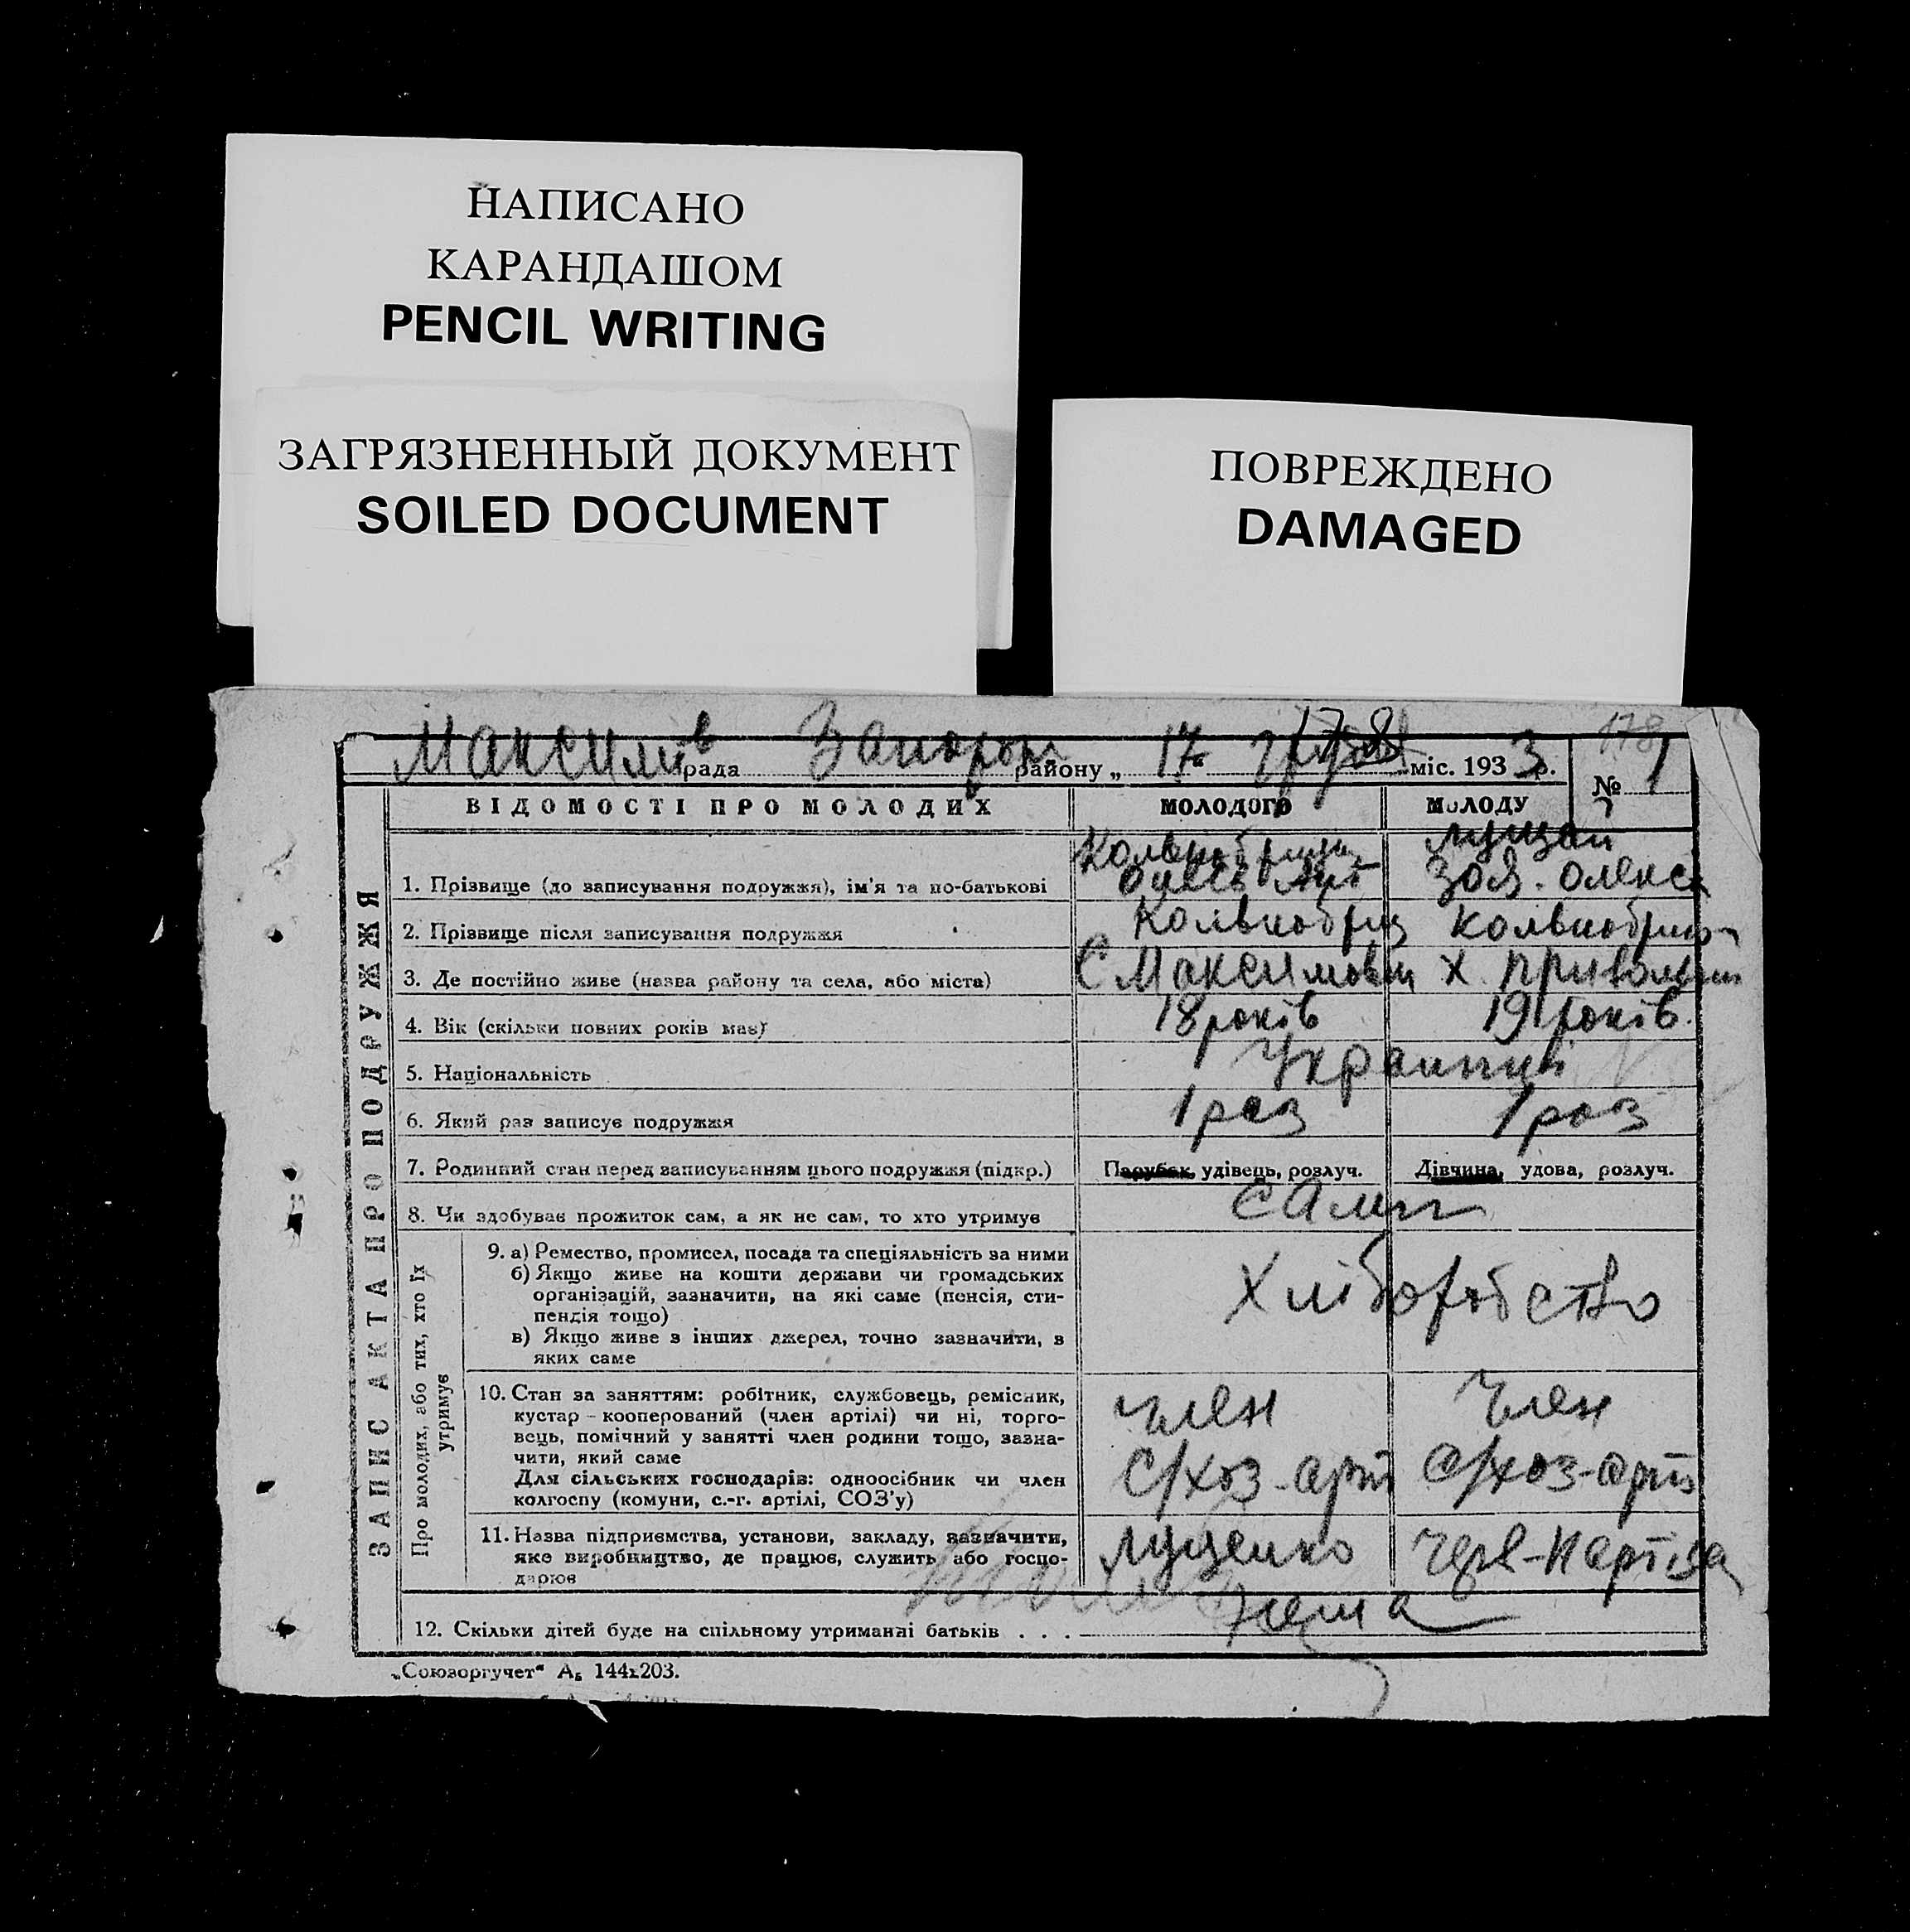 НАПИСАНО
КАРАНДАШОМ
PENCIL WRITING
ЗАГРЯЗНЕННЫЙ ДОКУМЕНТ
SOILED DOCUMENT
ПОВРЕЖДЕНО
DAMAGED
178
178
Максимів рада Запоріз району „ 17 “ міс. 1933 р. № 1
ВІДОМОСТІ ПРО МОЛОДИХ МОЛОДОГО МОЛОДУ
ЗАПИС АКТА ПРО ПОДРУЖЖЯ
1. Прізвище (до записування подружжя), ім'я та по-батькові Зоя. Олекс
2. Прізвище після записування подружжя
3. Де постійно живе (назва району та села, або міста) С Максимовки Х.
4. Вік (скільки повних років має) 18 років 19 років.
5. Національність Украинці
6. Який раз записує подружжя 1 раз 1 раз
7. Родинний стан перед записуванням цього подружжя (підкр.) Парубок, удівець, розлуч. Дівчина, удова, розлуч.
8. Чи здобуває прожиток сам, а як не сам, то хто утримує Сами
Про молодих, або тих, хто їх
утримує
9. а) Ремество, промисел, посада та спеціяльність за ними
б) Якщо живе на кошти держави чи громадських
організацій, зазначити, на які саме (пенсія, сти-
пендія тощо)
в) Якщо живе з інших джерел, точно зазначити, з
яких саме
Хліборобство
10. Стан за заняттям: робітник, службовець, ремісник,
кустар-кооперований (член артілі) чи ні, торго-
вець, помічний у занятті член родини тощо, зазна-
чити, який саме
Для сільських господарів: одноосібник чи член
колгоспу (комуни, с.-г. артілі, СОЗ'у)
член член
с/хоз-арт с/хоз-арт
11. Назва підприємства, установи, закладу, зазначити,
яке виробництво, де працює, служить або госпо-
дарює
Луценко Черв-Партиза
12. Скільки дітей буде на спільному утриманні батьків . . . Нема
„Союзоргучет“ А₅ 144х203.